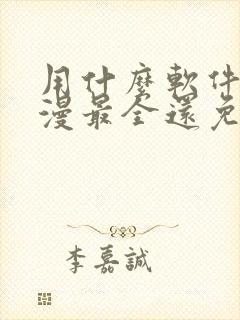 用什麼軟件
漫最全還免
李嘉誠